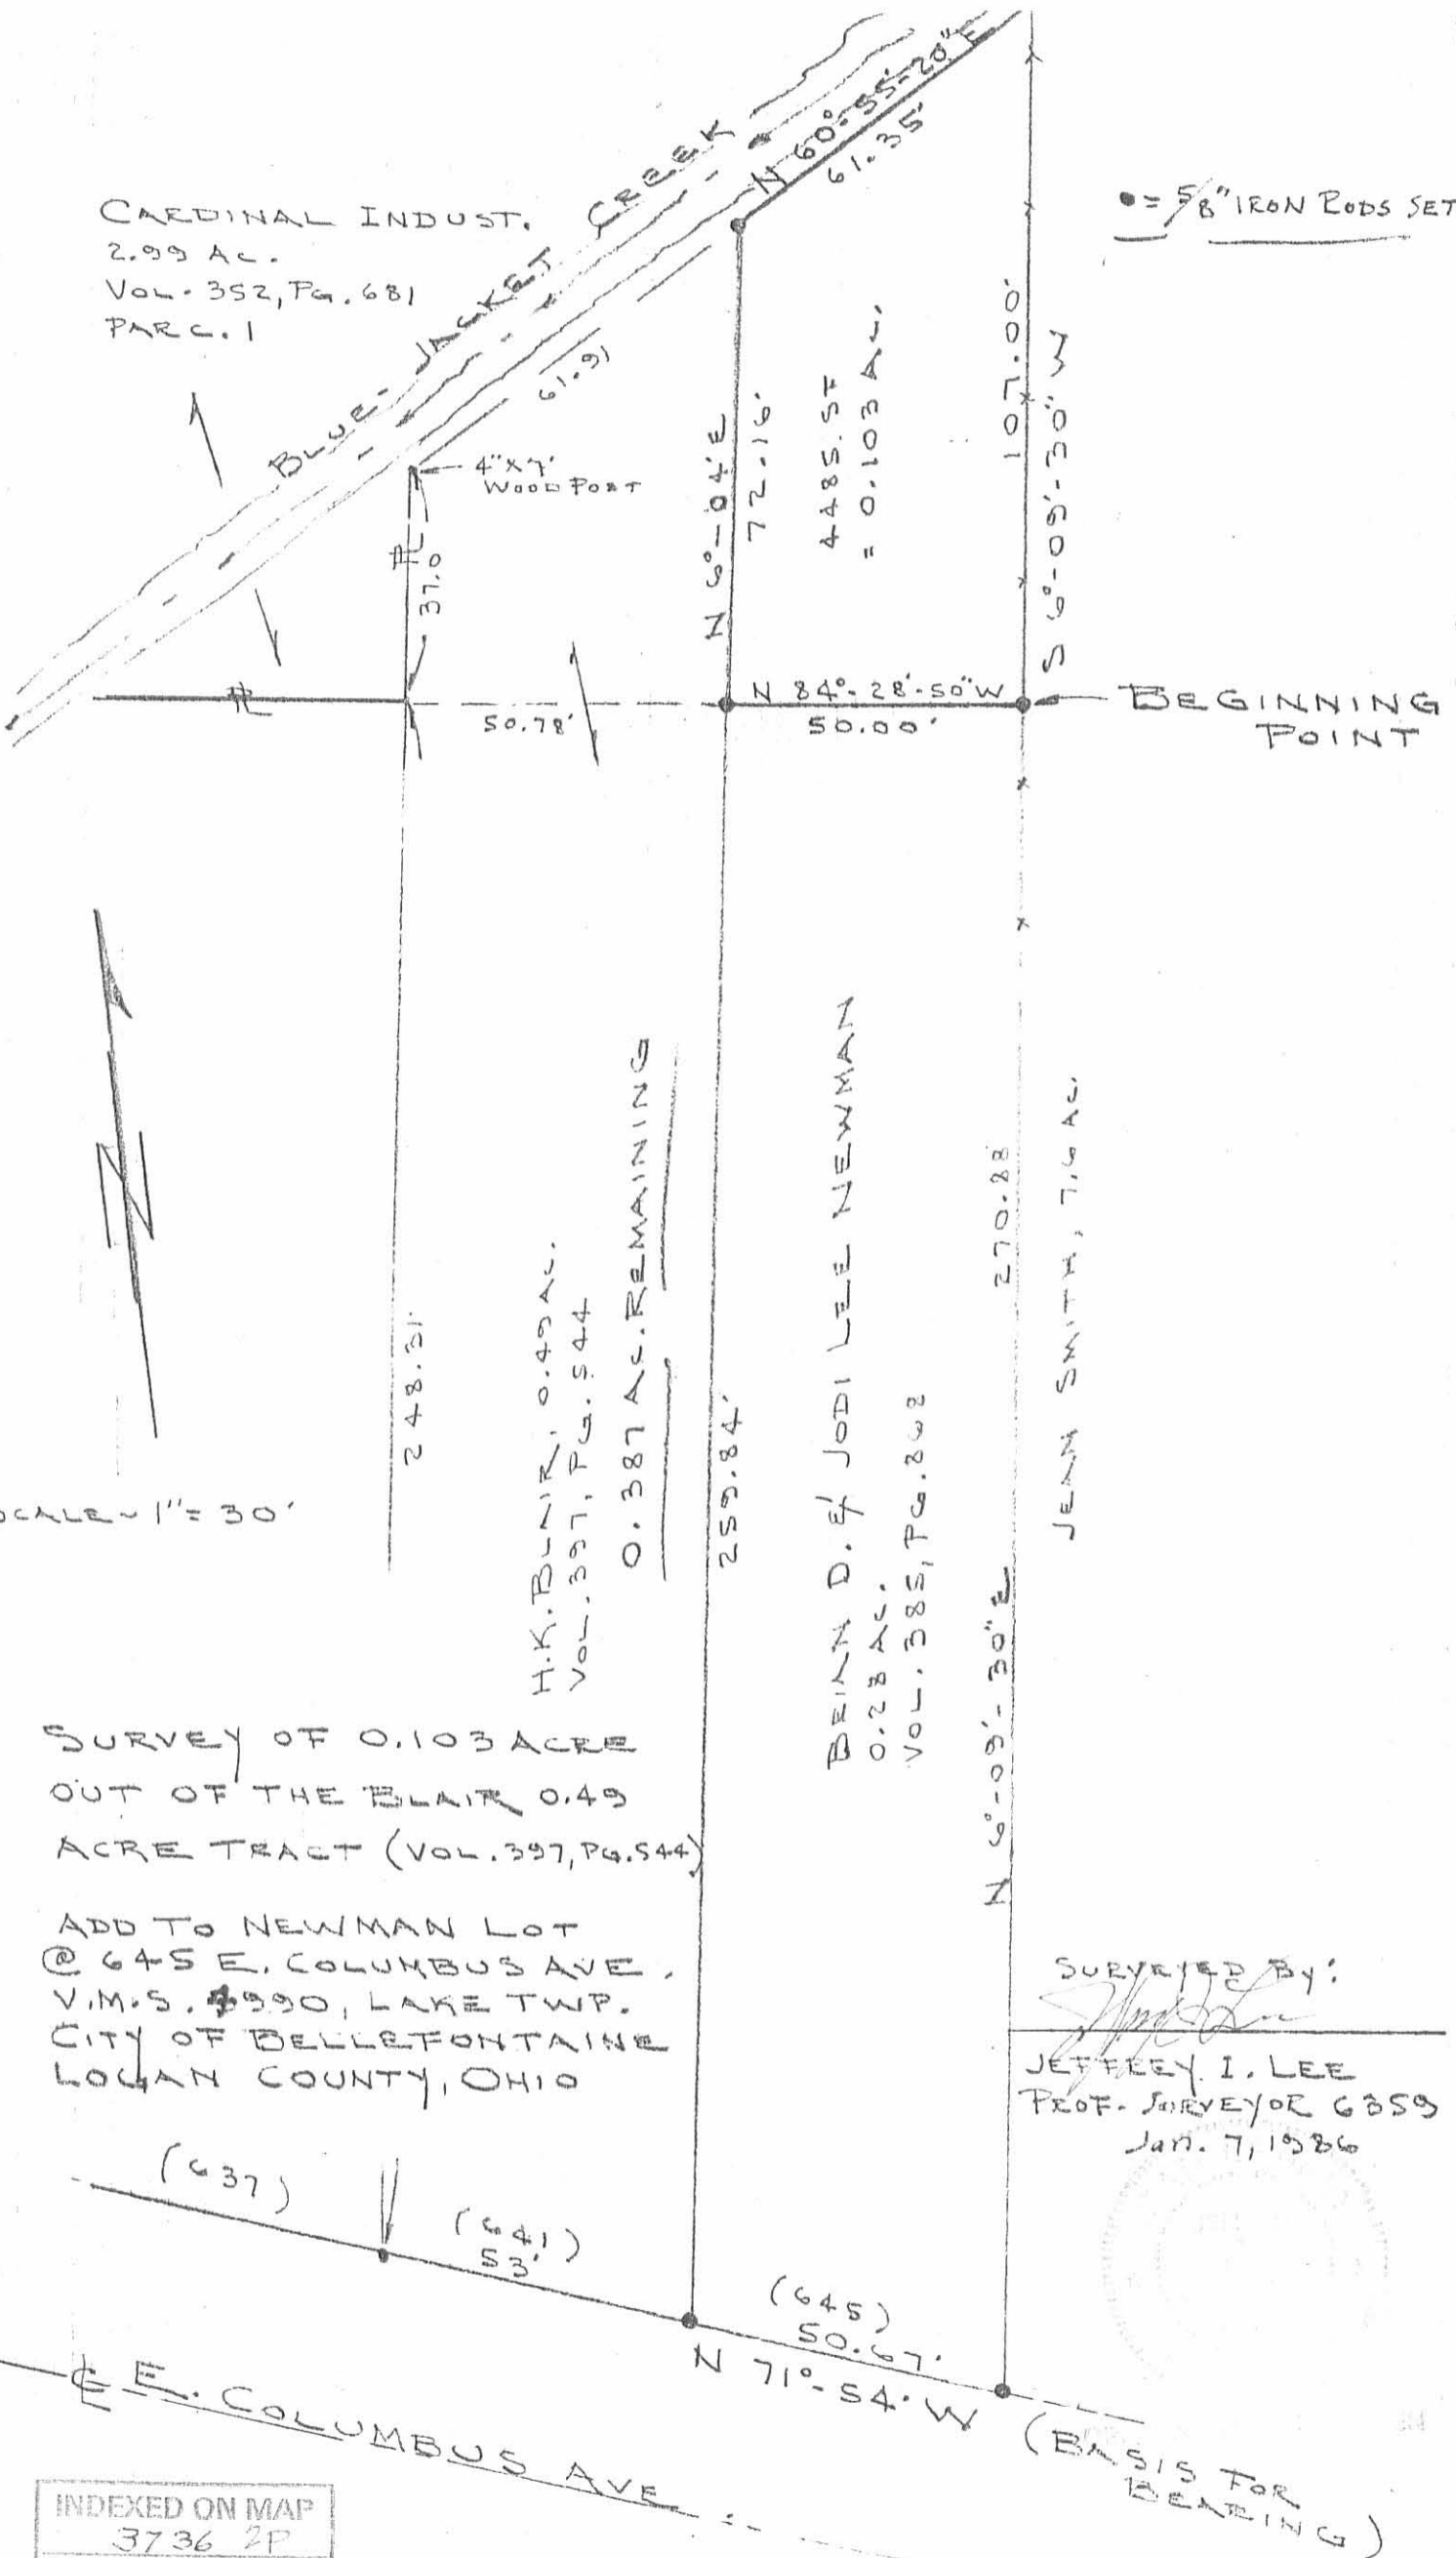 CARDINAL INDUST.
2.99 AC.
VOL. 352, PG. 681
PARC. 1
BLUE JACKET CREEK
N 60°-55'-20" E
61.35'
• = 5/8" IRON RODS SET
61.91
4"X7'
WOOD POST
PL
37.0
N 6°-04' E
72.16'
4485. SF
= 0.103 AC.
107.00'
S 6°-09'-30" W
PL
50.78'
N 84°-28'-50" W
50.00'
BEGINNING
POINT
N
SCALE ~ 1" = 30'
248.31'
H.K. BLAIR, 0.49 AC.
VOL. 397, PG. 544
0.387 AC. REMAINING
259.84'
BRIAN D. & JODI LEE NEWMAN
0.28 AC.
VOL. 385, PG. 868
N 6°-09'-30" E
270.88
JEAN SMITH, 7.6 AC.
SURVEY OF 0.103 ACRE
OUT OF THE BLAIR 0.49
ACRE TRACT (VOL. 397, PG. 544)
ADD TO NEWMAN LOT
@ 645 E. COLUMBUS AVE.
V.M.S. 4990, LAKE TWP.
CITY OF BELLEFONTAINE
LOGAN COUNTY, OHIO
SURVEYED BY:
JEFFREY I. LEE
PROF. SURVEYOR 6359
Jan. 7, 1986
(637)
(641)
53'
(645)
50.67'
N 71°-54' W
(BASIS FOR
BEARING)
CL E. COLUMBUS AVE.
INDEXED ON MAP
3736 2P